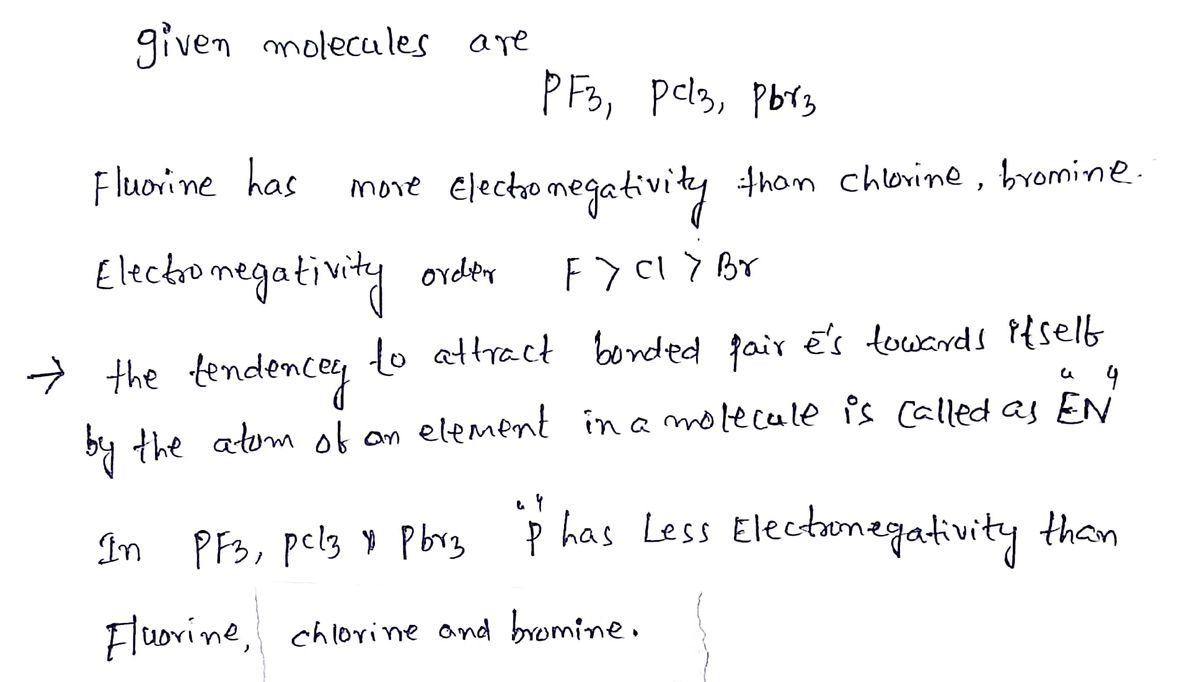 given molecules are
PF3, pcl3, pbr3
Fluorine has more Electronegativity than chlorine, bromine.
Electronegativity order F > Cl > Br
→ the tendencey to attract bonded pair ē's towards itself
by the atom of an element in a molecule is called as "EN"
In PF3, pcl3 & pbr3 "p" has Less Electronegativity than
Fluorine, chlorine and bromine.